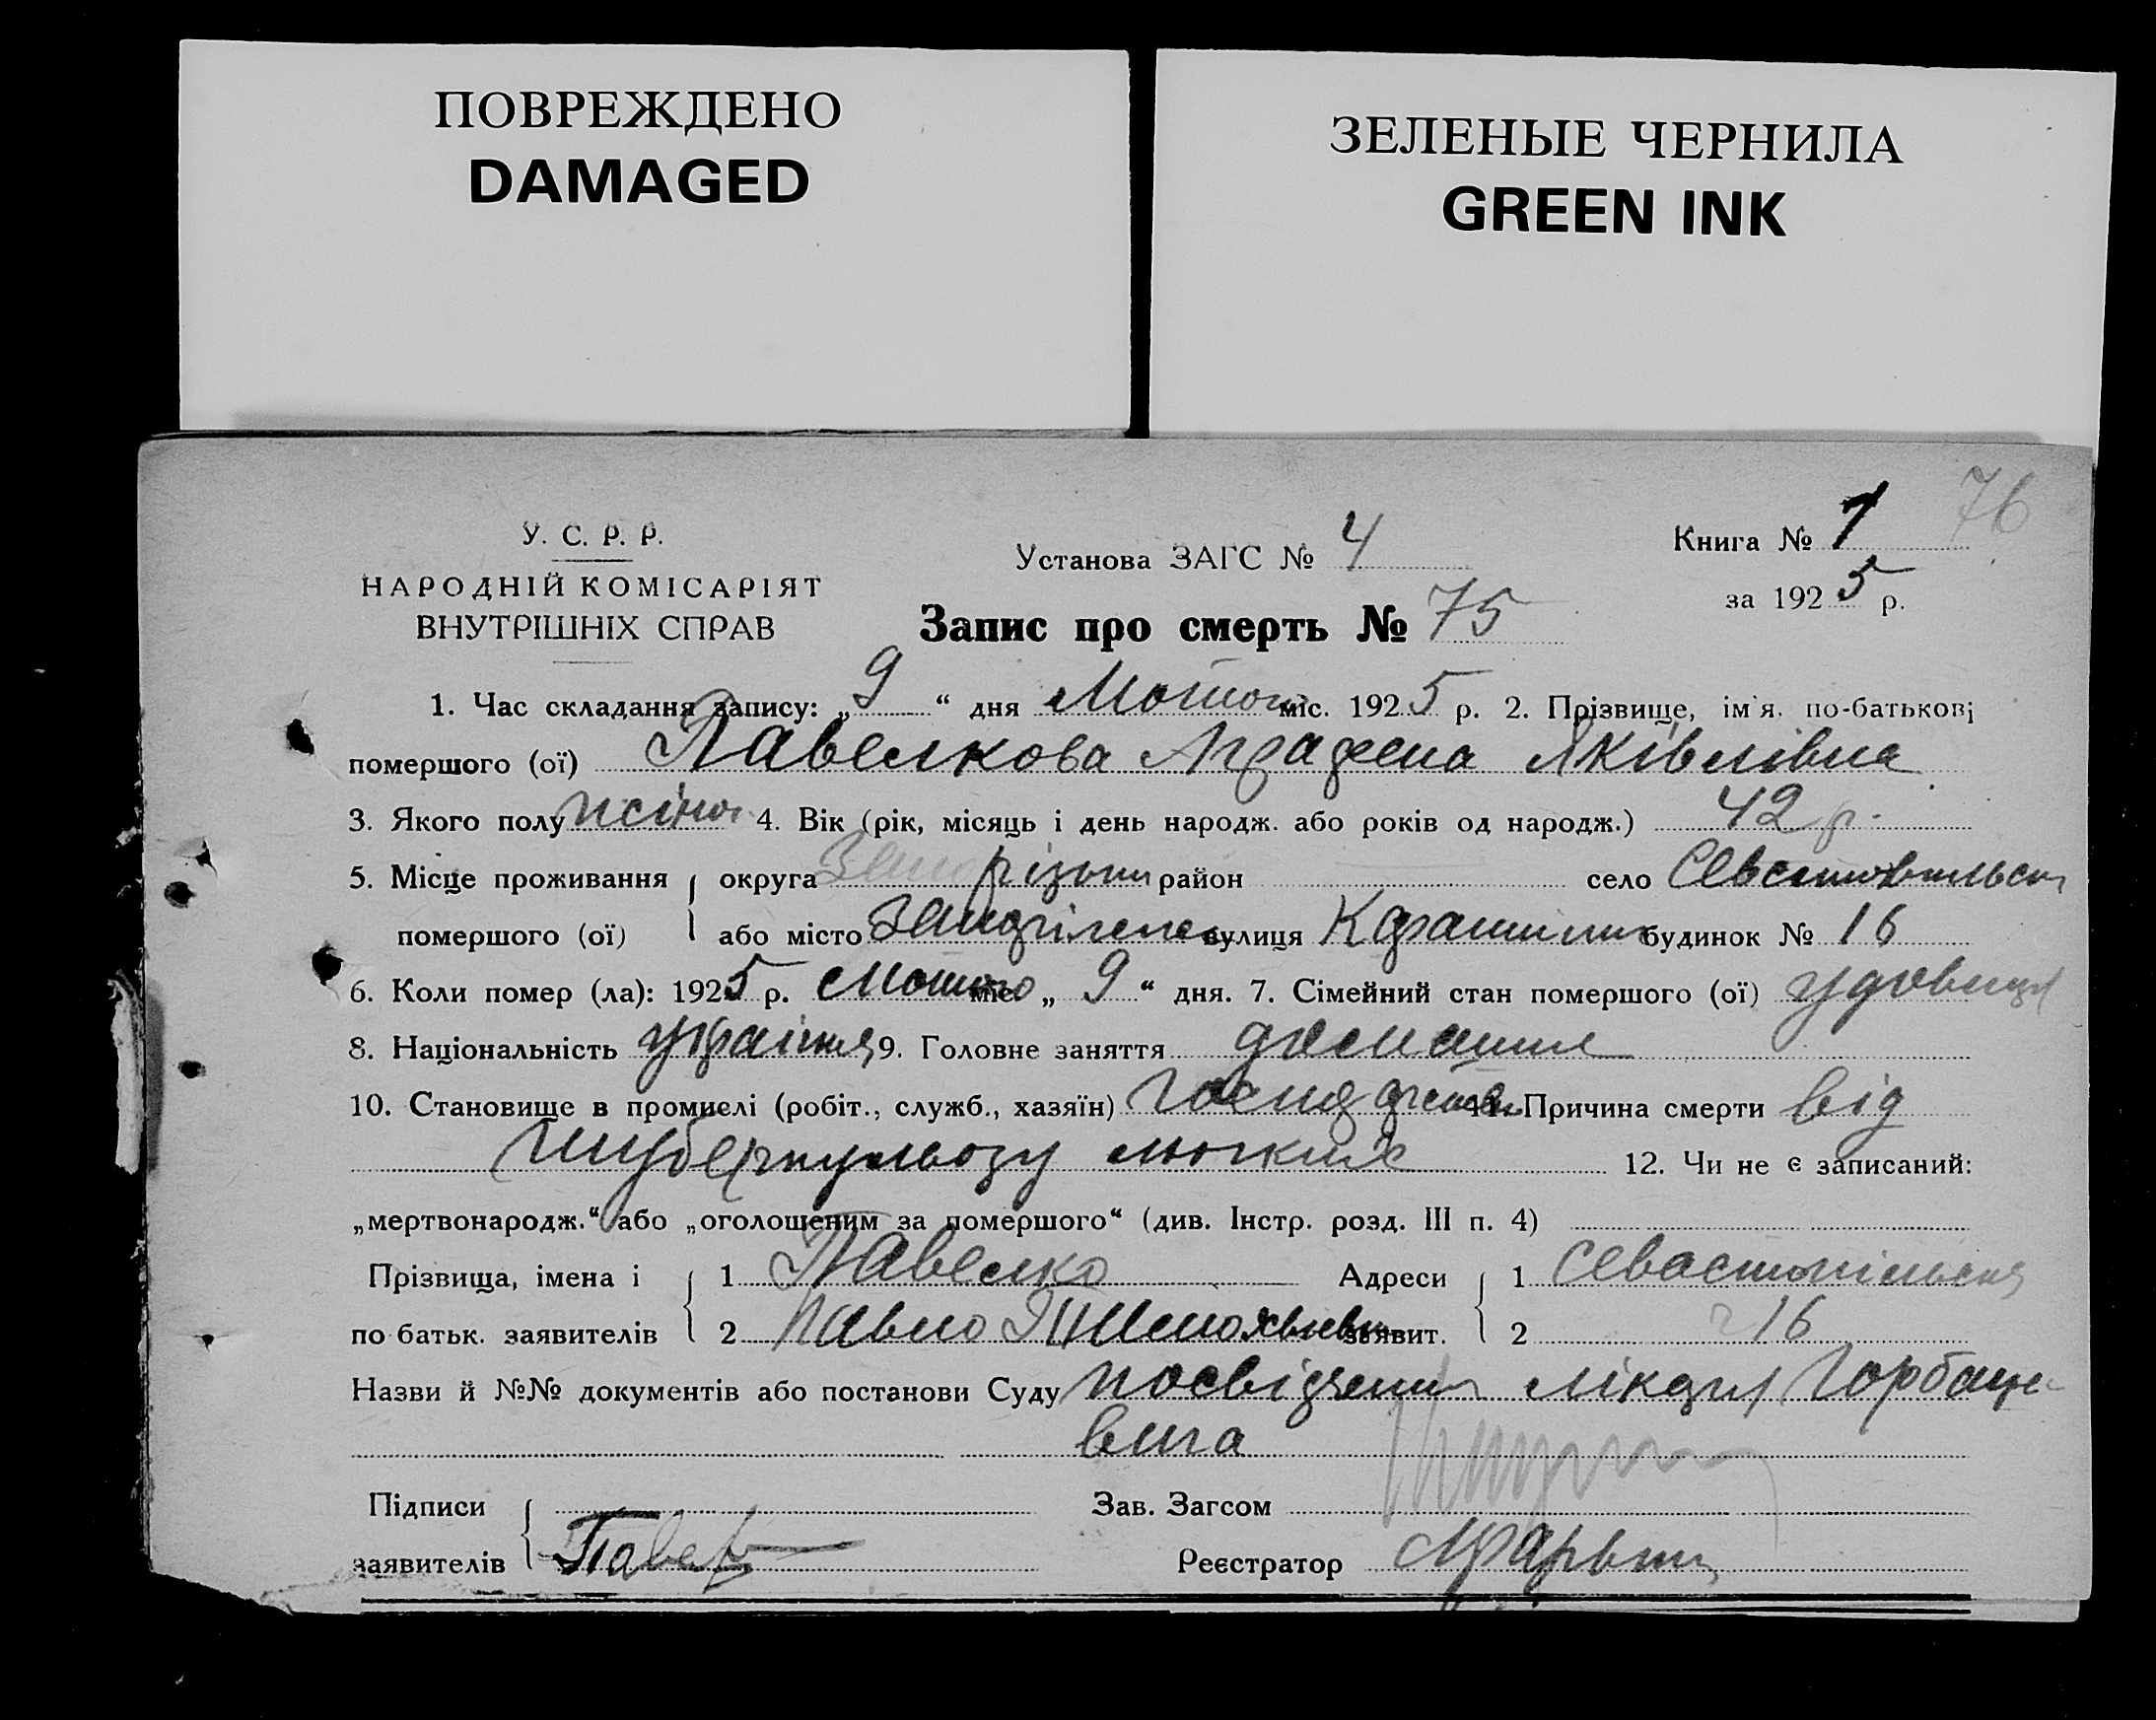 ПОВРЕЖДЕНО
DAMAGED
ЗЕЛЕНЫЕ ЧЕРНИЛА
GREEN INK
76
У. С. Р. Р.
НАРОДНІЙ КОМІСАРІЯТ
ВНУТРІШНІХ СПРАВ
Установа ЗАГС № 4
Книга № 1
за 1925 р.
Запис про смерть № 75
1. Час складання запису: „9“ дня Лютого міс. 1925 р. 2. Прізвище, ім'я. по-батькові
помершого (ої) Павелкова Аграфена Яківлівна
3. Якого полу жіноч. 4. Вік (рік, місяць і день народж. або років од народж.) 42 р.
5. Місце проживання округа район село
помершого (ої) або місто вулиця будинок № 16
6. Коли помер (ла): 1925 р. Лютого міс. „9“ дня. 7. Сімейний стан помершого (ої) удовиця
8. Національність 9. Головне заняття домашнє
10. Становище в промислі (робіт., служб., хазяїн) 11. Причина смерти від
туберкульозу 12. Чи не є записаний:
„мертвонародж.“ або „оголошеним за помершого“ (див. Інстр. розд. III п. 4)
Прізвища, імена і 1 Павелко Адреси 1 Севастопільська
по батьк. заявителів 2 Павло заявит. 2 16
Назви й №№ документів або постанови Суду посвідчення лікаря Горбаце-
вича
Підписи Зав. Загсом
заявителів Реєстратор